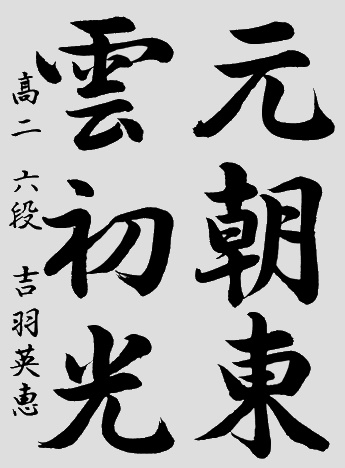 元朝東
雲初光
高二 六段 吉羽英恵